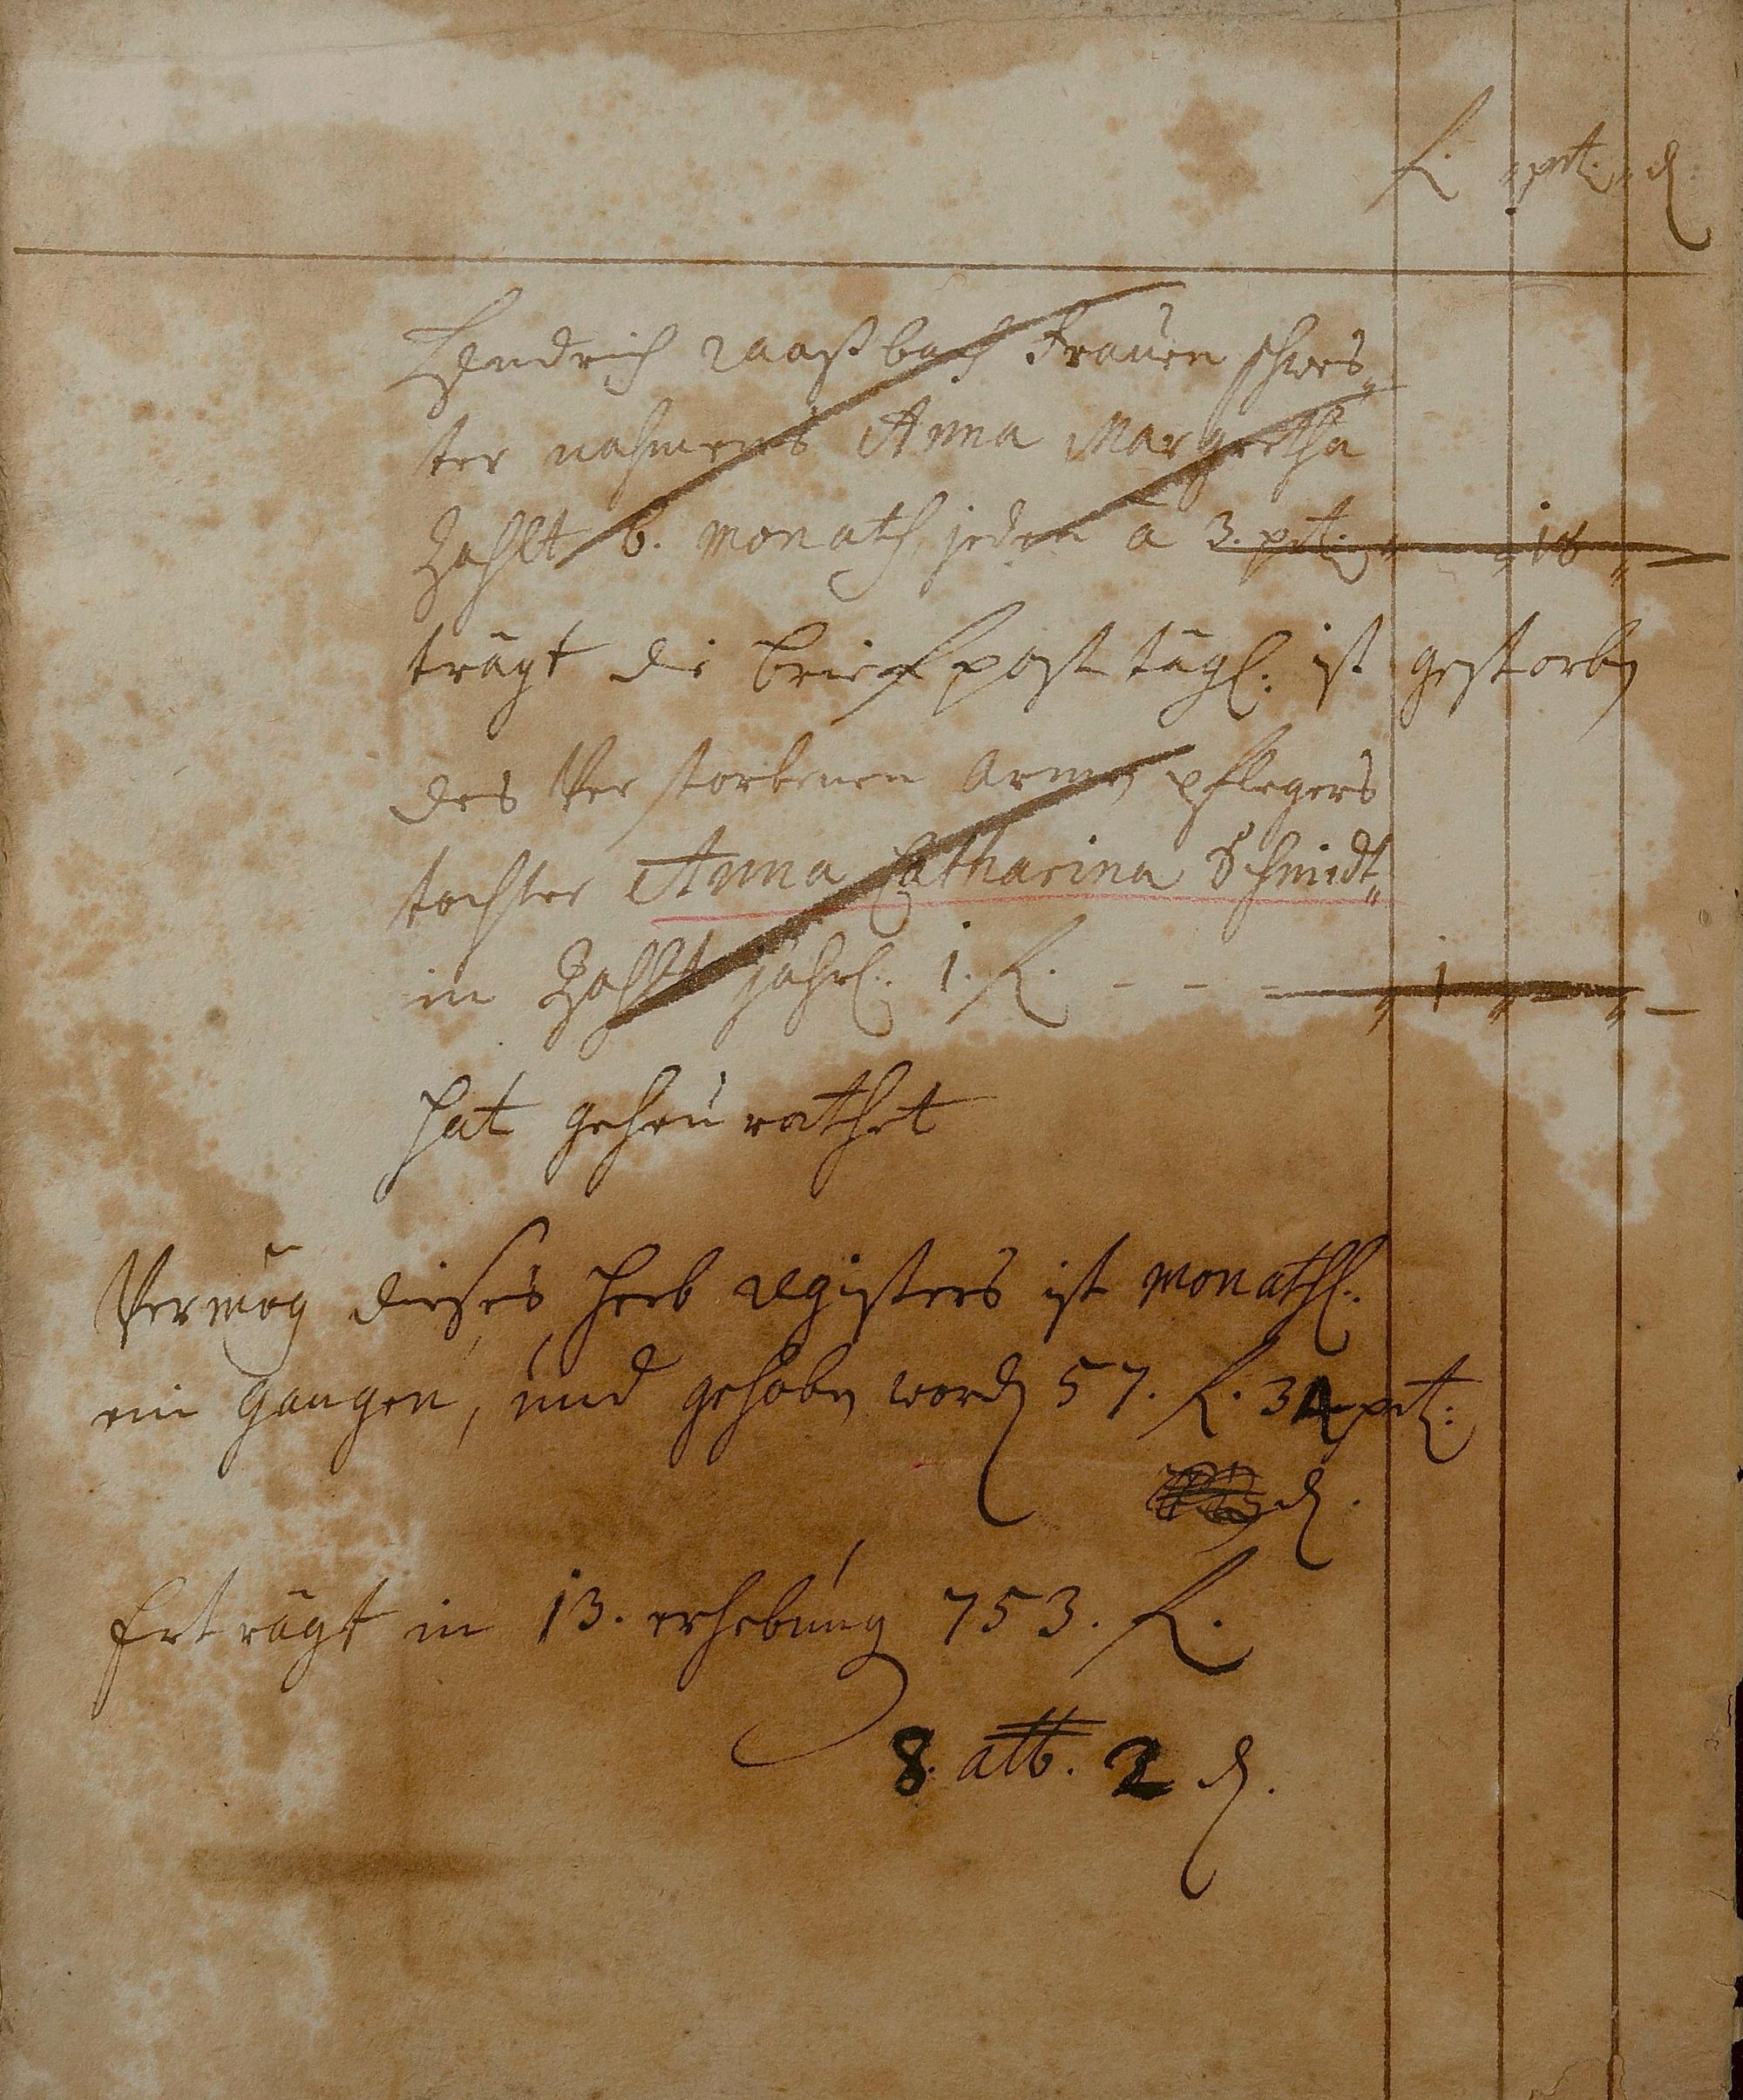 fl. pet. d
Hendrich raaßbach Frauen schwes
ter nahmens Anna Margretha
Zahlt 6. Monath, jeden a 3. pet. 18
trägt die brief post tägl: ist gestorben
des Verstorbenen armen pflegers
tochter Anna Catharina Schmidt
in Zahlt jährl: 1. fl. - - - 1
hat geheurathet
Vermög dieses Heeb registers ist Monathl:
ein gangen, und gehoben worden 57. fl. pet:
d.
Erträgt in 13. erhebung 753. fl.
8. alb. 2 d.